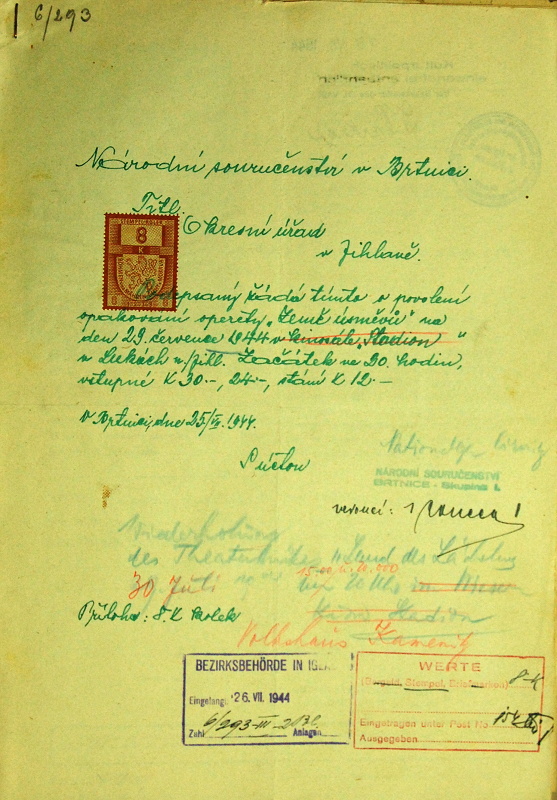 6/293
Národní souručenství v Brtnici.
Titl.
Okresní úřad
v Jihlavě.
STEMPELMARKE
8
K
Podepsaný žádá tímto o povolení
opakování operety „Země úsměvů" na
den 29. července 1944 v „Stadion"
v Lukách n./Jihl. Začátek ve 20. hodin,
vstupné K 30.-, 24.-, stání K 12.-
V Brtnici, dne 25/VII. 1944.
S úctou
NÁRODNÍ SOURUČENSTVÍ
BRTNICE - Skupina I.
vedoucí:
Wiederholung
des Theaterstückes „Land des Lächelns
30. Juli 20 Uhr
Stadion
Příloha: 8.K kolek
Volkshaus Kamenitz
BEZIRKSBEHÖRDE IN
Eingelangt: 26. VII. 1944
Zahl 6/293-III- Anlagen
WERTE
(Bargeld, Stempel, Briefmarken) 8 K
Eingetragen unter Post No.
Ausgegeben